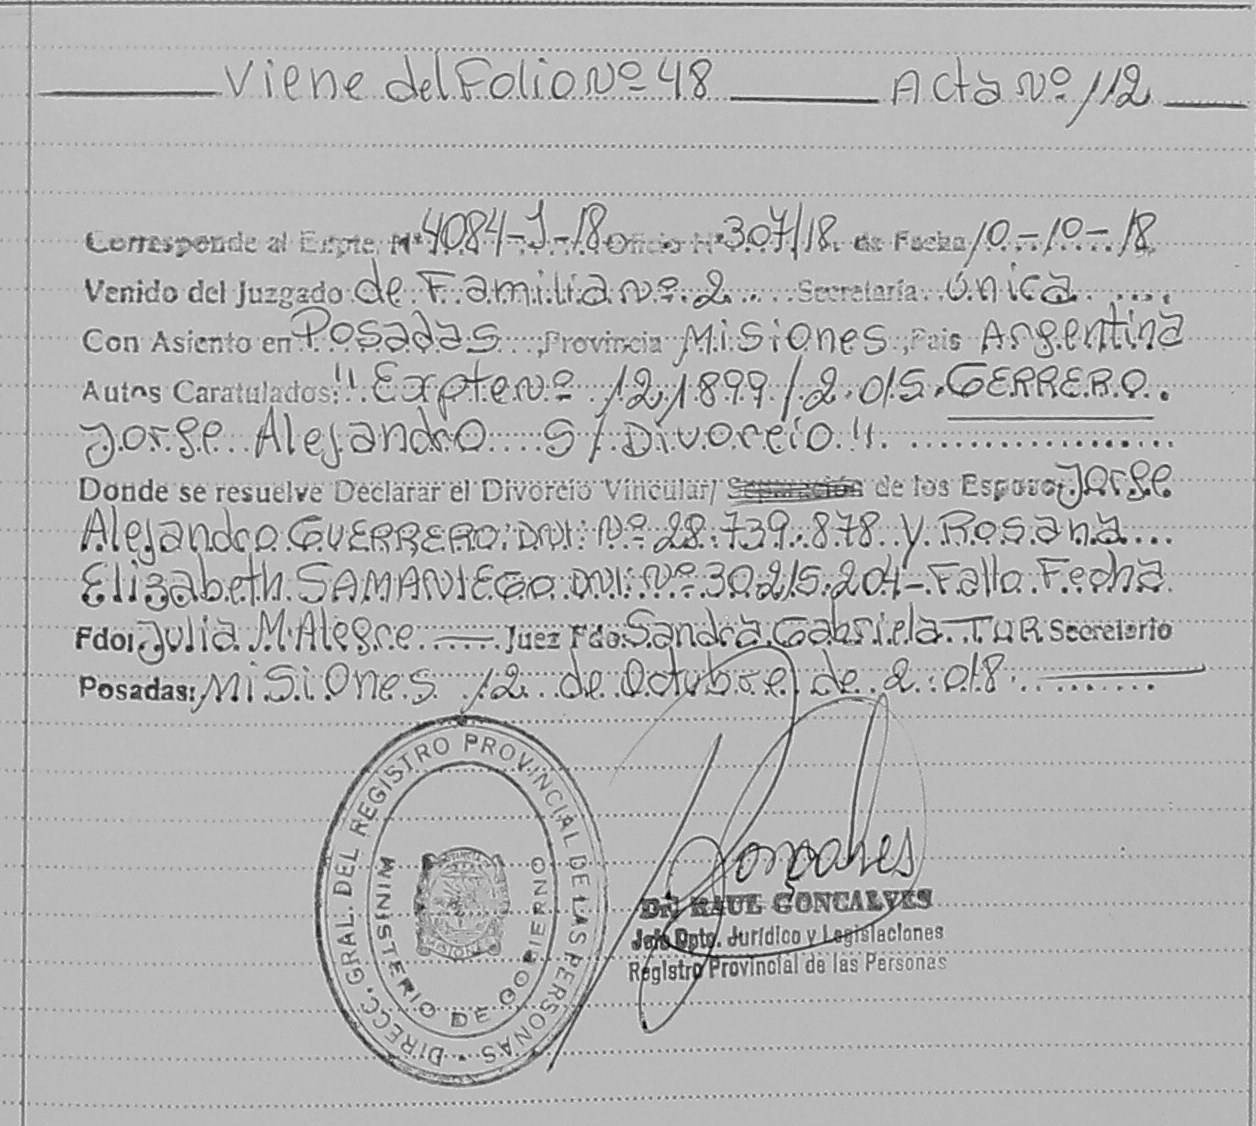 Viene del Folio Nº 48 Acta Nº 112
Corresponde al Expte. Nº 4084-J-18 Oficio Nº 307/18 de Fecha 10-10-18
Venido del Juzgado de Familia Nº 2 Secretaría Única
Con Asiento en Posadas, Provincia Misiones, Pais Argentina
Autos Caratulados: "Expte Nº 121899/2015. GERRERO.
Jorge Alejandro S/Divorcio".
Donde se resuelve Declarar el Divorcio Vincular/ Separación de los Esposo Jorge
Alejandro GUERRERO DNI Nº 28.739.878 y Rosana
Elizabeth SAMANIEGO DNI Nº 30.215.204- Fallo Fecha
Fdo: Julia M. Alegre Juez Fdo. Sandra Gabriela TUR Secretario
Posadas: Misiones 12 de Octubre de 2018
DIRECC. GRAL. DEL REGISTRO PROVINCIAL DE LAS PERSONAS
MINISTERIO DE GOBIERNO
Goncalves
Dr. RAUL GONCALVES
Jefe Dpto. Jurídico y Legislaciones
Registro Provincial de las Personas